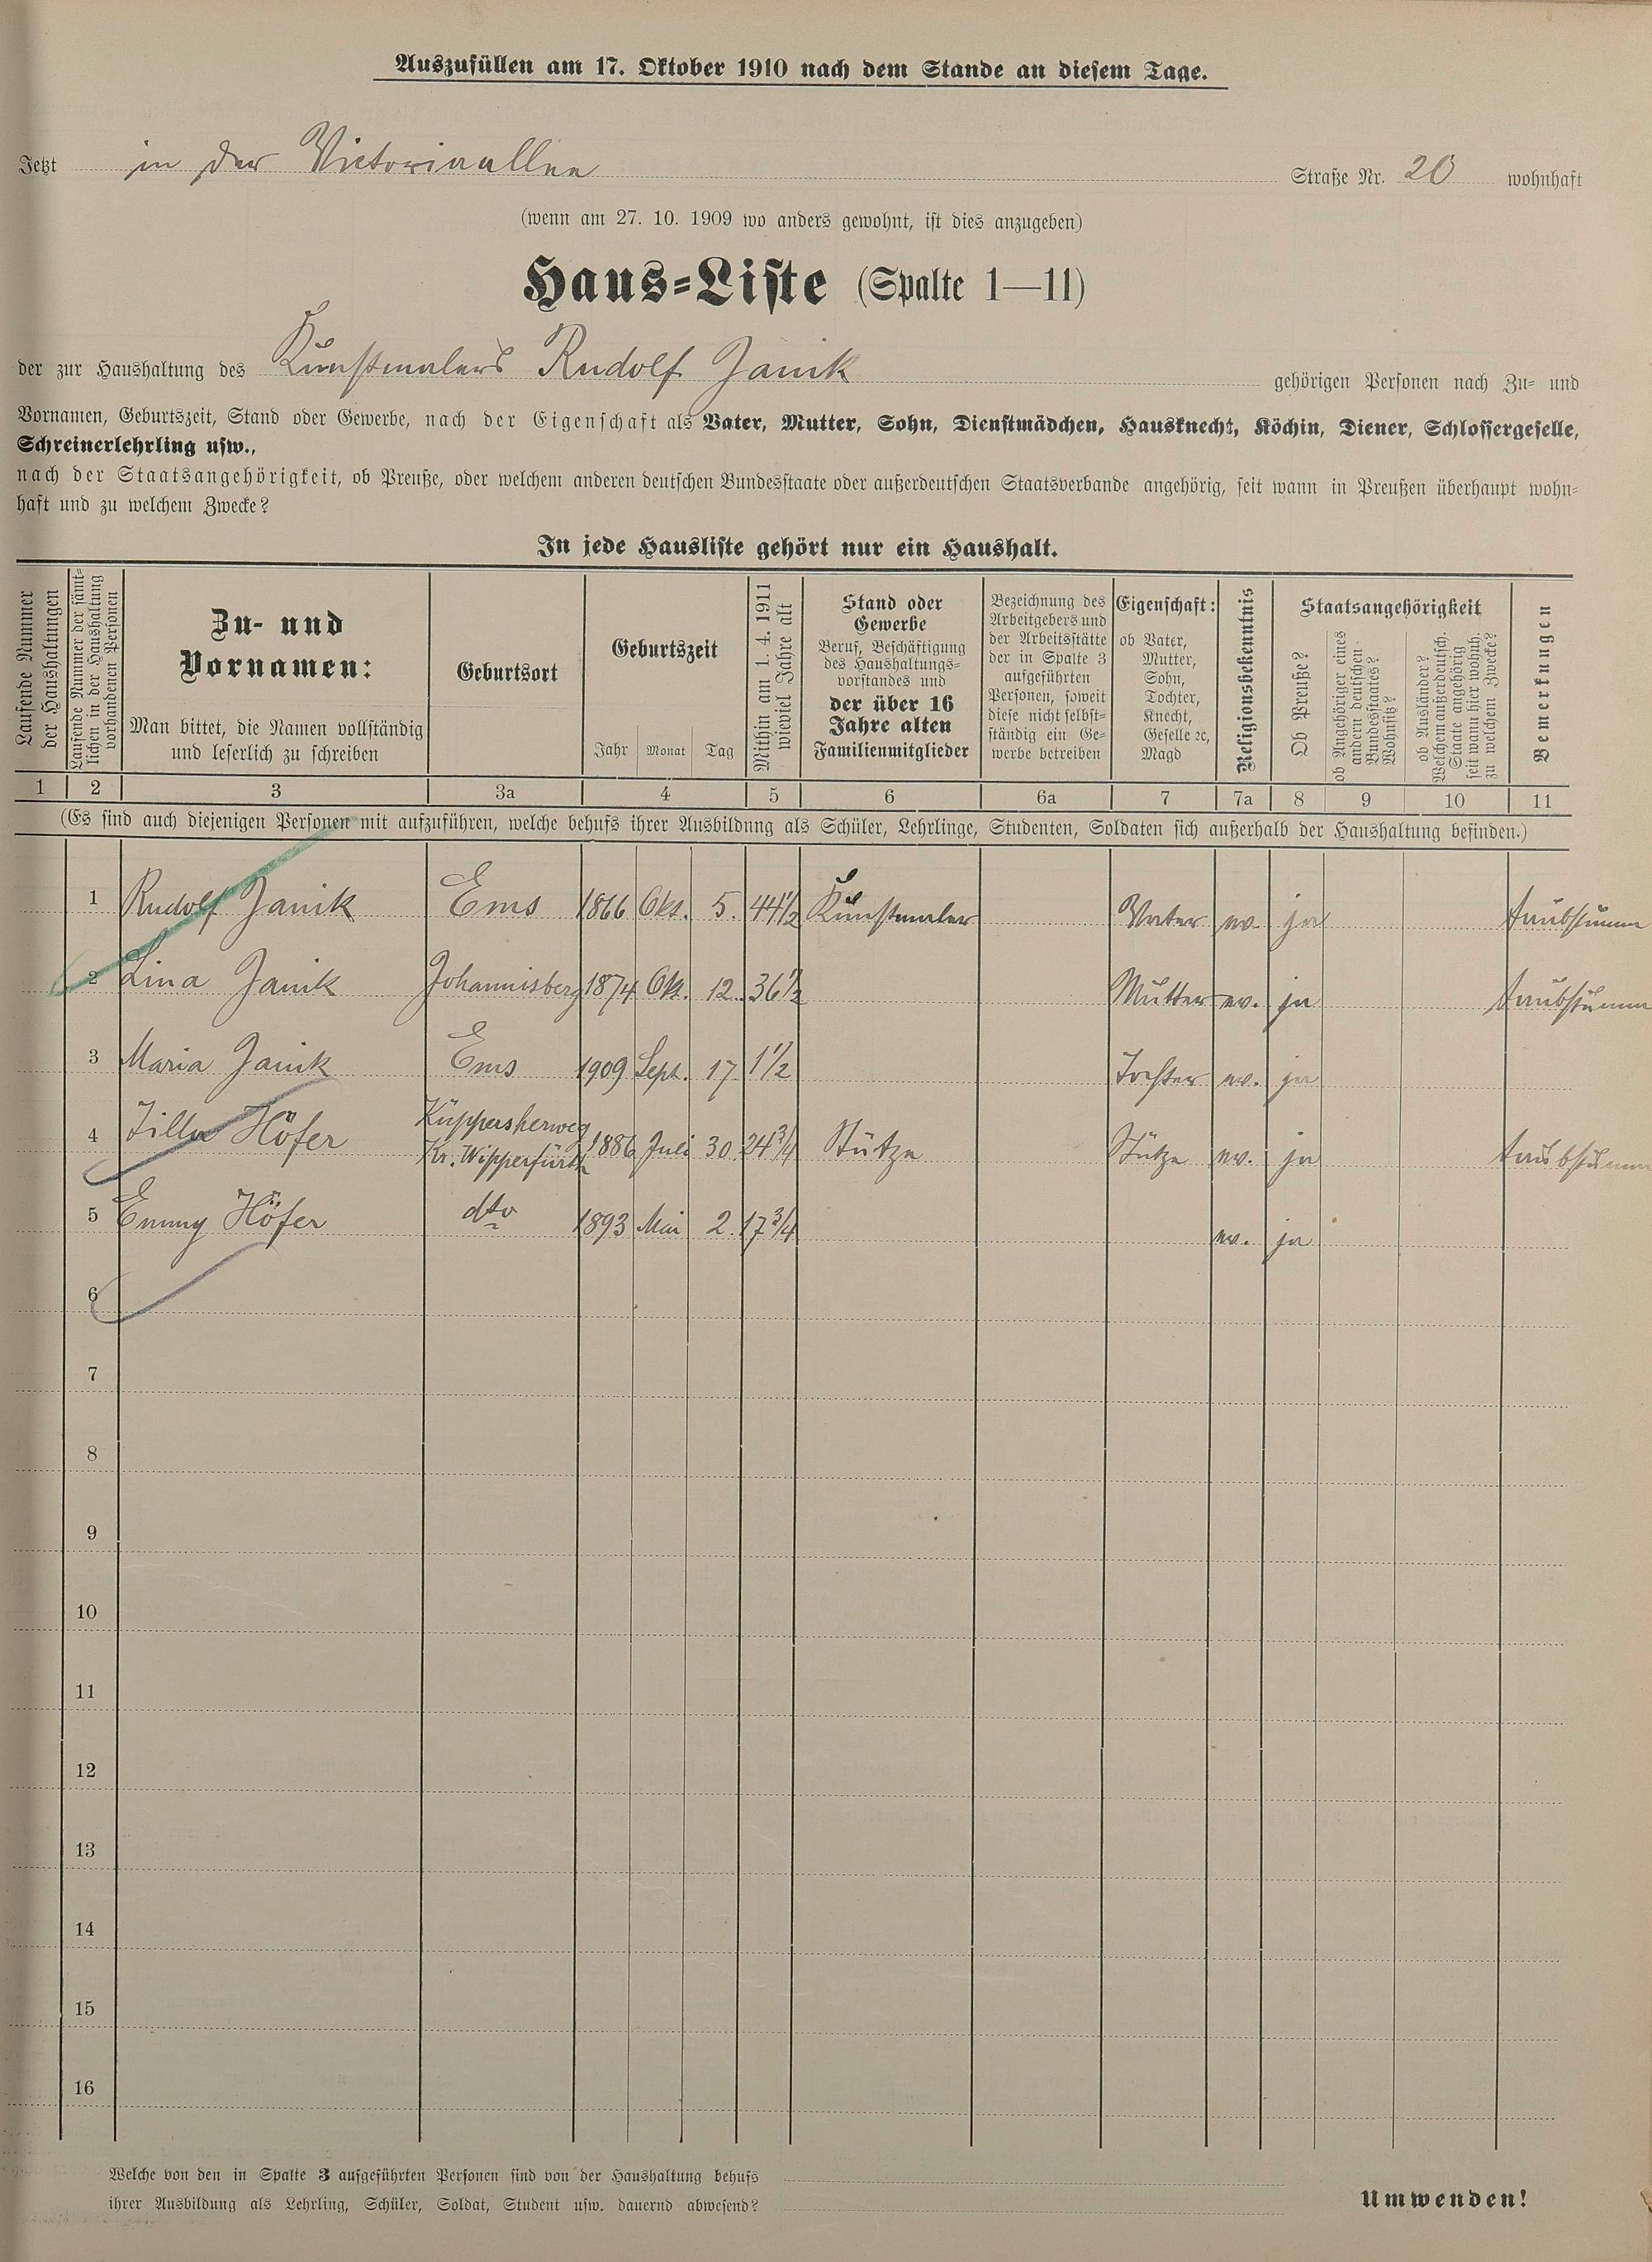 Auszufüllen am 17. Oktober 1910 nach dem Stande an diesem Tage.
Jetzt in der Victoriaallee Straße Nr. 20 wohnhaft
(wenn am 27. 10. 1909 wo anders gewohnt, ist dies anzugeben)
Haus-Liste (Spalte 1—11)
der zur Haushaltung des Kunstmalers Rudolf Janik gehörigen Personen nach Zu- und
Vornamen, Geburtszeit, Stand oder Gewerbe, nach der Eigenschaft als Vater, Mutter, Sohn, Dienstmädchen, Hausknecht, Köchin, Diener, Schlossergeselle,
Schreinerlehrling usw.,
nach der Staatsangehörigkeit, ob Preuße, oder welchem anderen deutschen Bundesstaate oder außerdeutschen Staatsverbande angehörig, seit wann in Preußen überhaupt wohn-
haft und zu welchem Zwecke?
In jede Hausliste gehört nur ein Haushalt.
Laufende Nummer
der Haushaltungen
Laufende Nummer der sämt-
lichen in der Haushaltung
vorhandenen Personen
Zu- und
Vornamen:
Man bittet, die Namen vollständig
und leserlich zu schreiben
Geburtsort
Geburtszeit
Jahr Monat Tag
Mithin am 1. 4. 1911
wieviel Jahre alt
Stand oder
Gewerbe
Beruf, Beschäftigung
des Haushaltungs-
vorstandes und
der über 16
Jahre alten
Familienmitglieder
Bezeichnung des
Arbeitgebers und
der Arbeitsstätte
der in Spalte 3
aufgeführten
Personen, soweit
diese nicht selbst-
ständig ein Ge-
werbe betreiben
Eigenschaft:
ob Vater,
Mutter,
Sohn,
Tochter,
Knecht,
Geselle ꝛc,
Magd
Religionsbekenntnis
Staatsangehörigkeit
Ob Preuße?
ob Angehöriger eines
andern deutschen
Bundesstaates?
Wohnsitz?
ob Ausländer?
Welchem außerdeutsch.
Staate angehörig
seit wann hier wohnh.
zu welchem Zwecke?
Bemerkungen
1 2 3 3a 4 5 6 6a 7 7a 8 9 10 11
(Es sind auch diejenigen Personen mit aufzuführen, welche behufs ihrer Ausbildung als Schüler, Lehrlinge, Studenten, Soldaten sich außerhalb der Haushaltung befinden.)
1 Rudolf Janik Ems 1866 Okt. 5. 44½ Kunstmaler Vater ev. ja taubstumm
2 Lina Janik Johannisberg 1874 Okt. 12. 36½ Mutter ev. ja taubstumm
3 Maria Janik Ems 1909 Sept. 17 1½ Tochter ev. ja
4 Tilla Höfer Küppersherweg
Kr. Wipperfürth 1886 Juli 30 24¾ Stütze Stütze ev. ja taubstumm
5 Emmy Höfer dto 1893 Mai 2. 17¾ ev. ja
6
7
8
9
10
11
12
13
14
15
16
Welche von den in Spalte 3 aufgeführten Personen sind von der Haushaltung behufs
ihrer Ausbildung als Lehrling, Schüler, Soldat, Student usw. dauernd abwesend?
Umwenden!